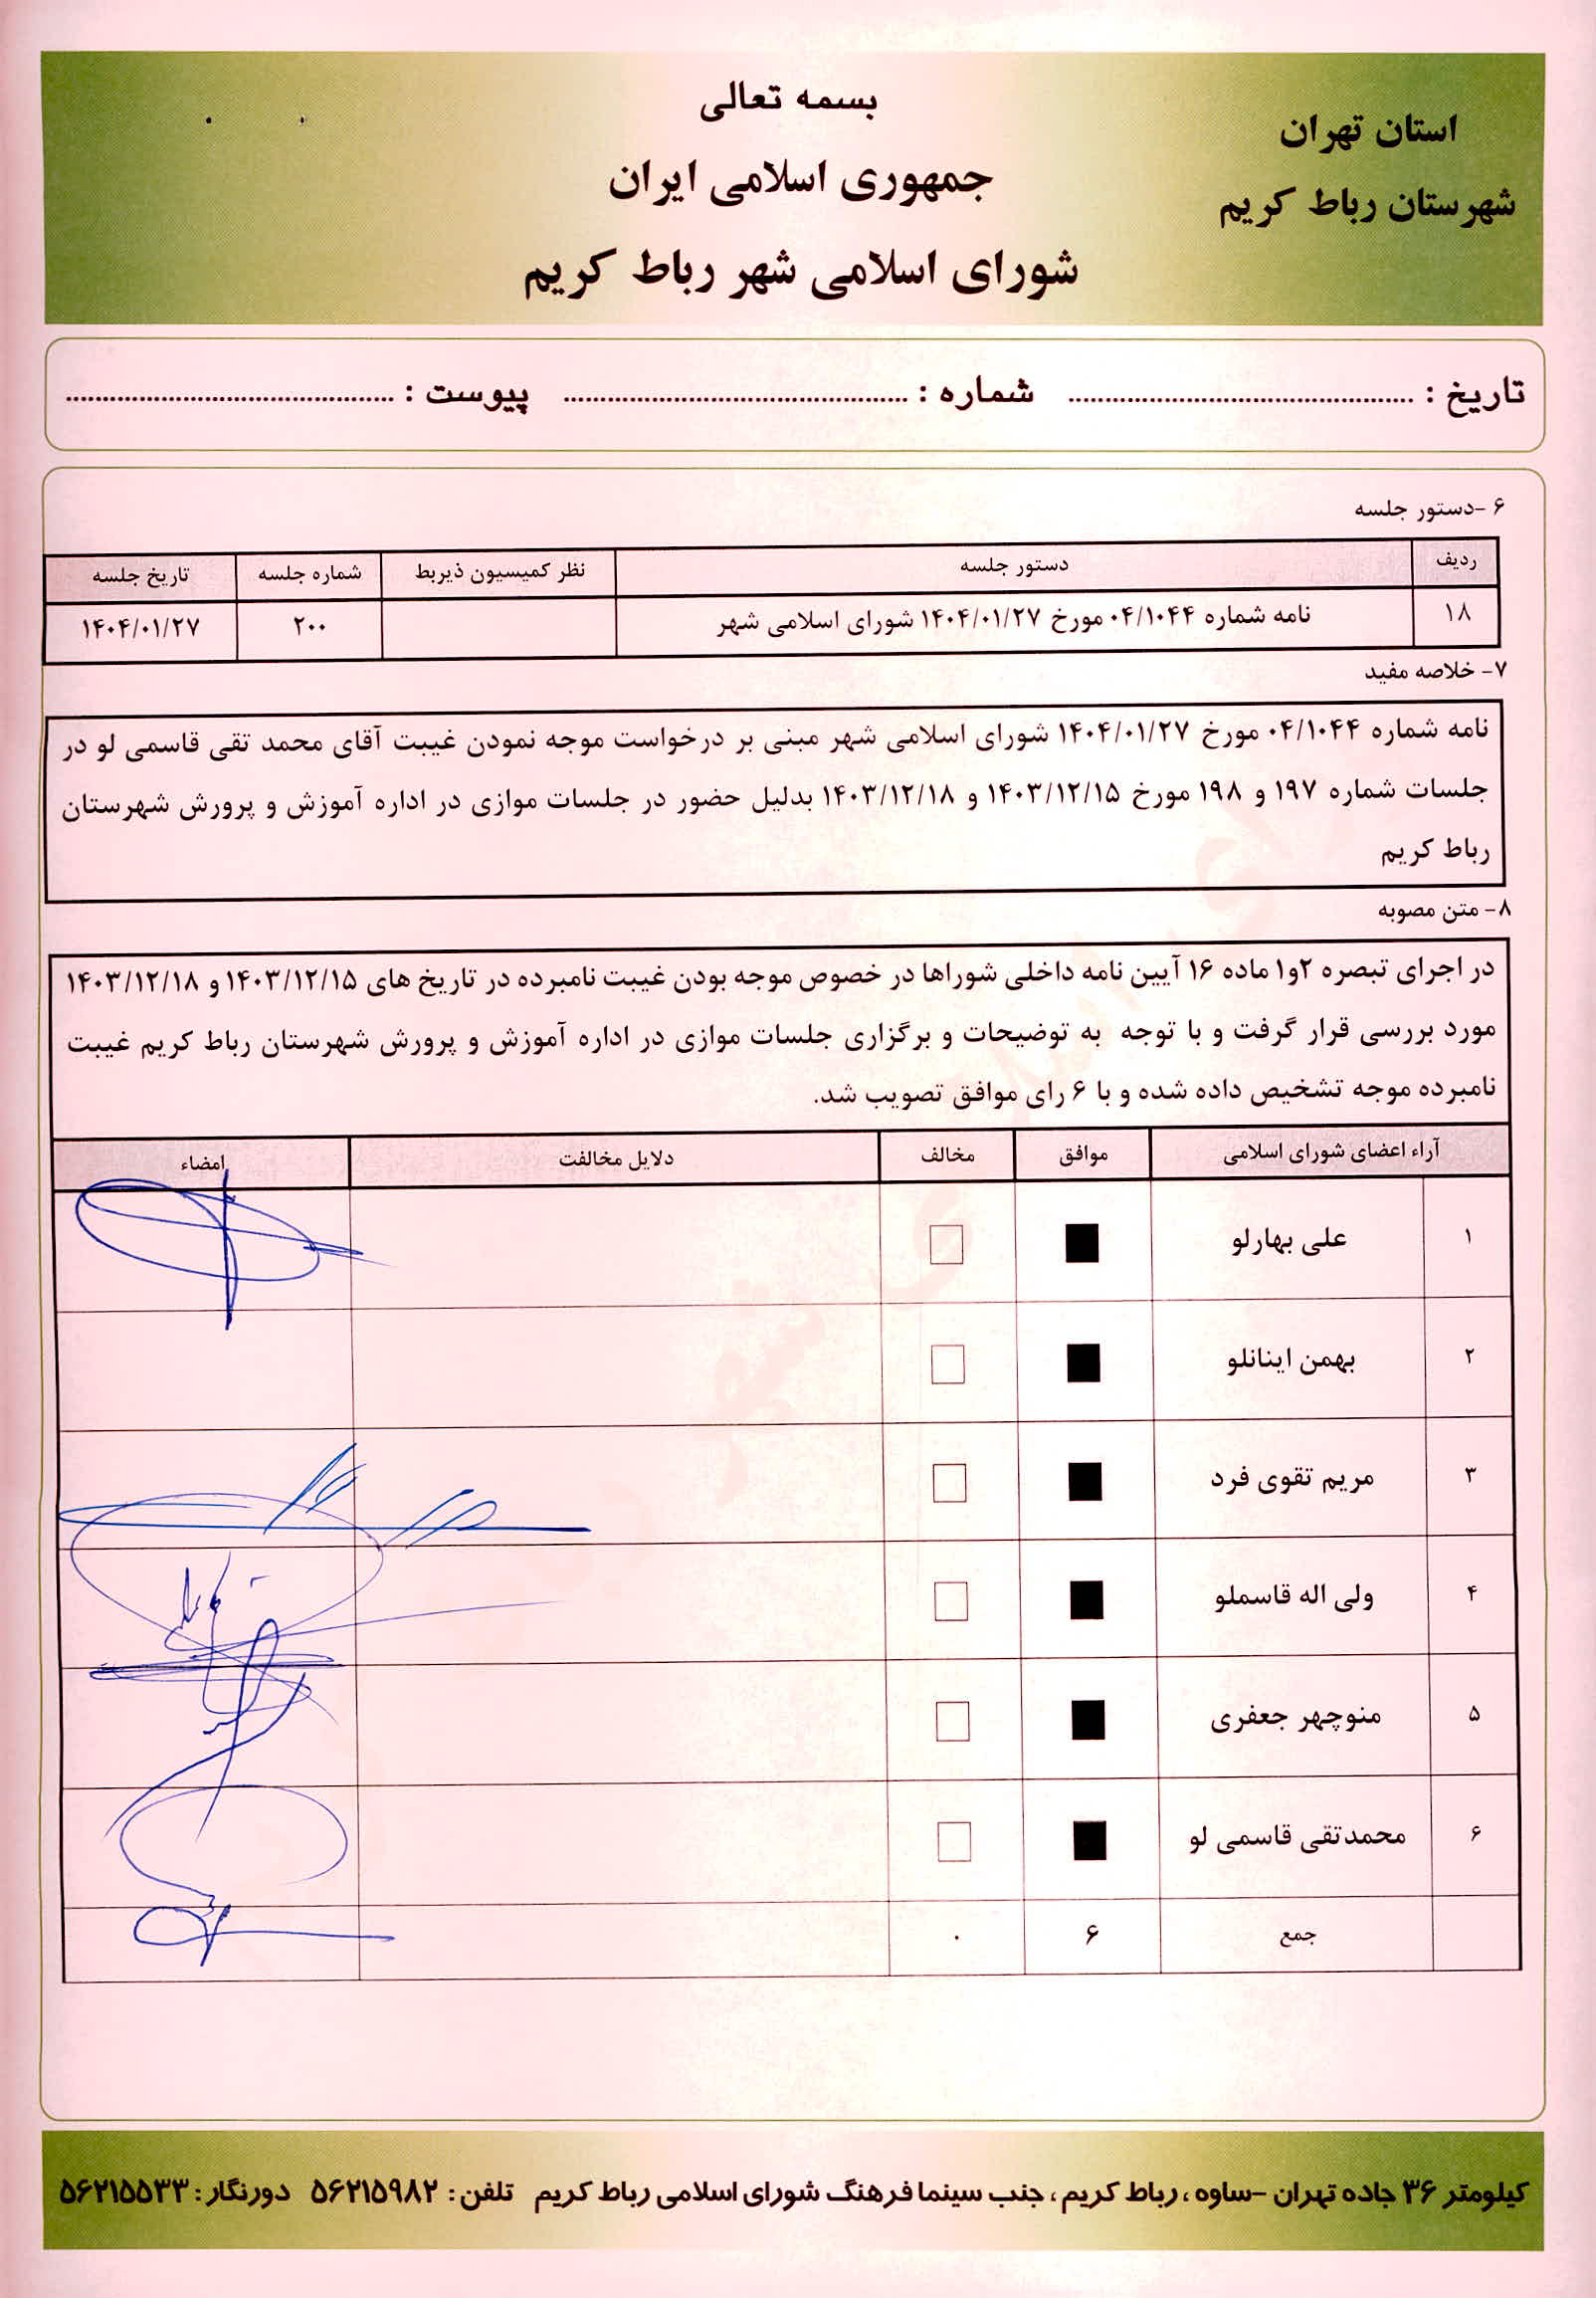 بسمه تعالی
جمهوری اسلامی ایران
شورای اسلامی شهر رباط کریم
استان تهران
شهرستان رباط کریم
تاریخ : ............................................ شماره : ............................................ پیوست : ............................................
۶ -دستور جلسه
ردیف دستور جلسه نظر کمیسیون ذیربط شماره جلسه تاریخ جلسه
۱۸ نامه شماره ۰۴/۱۰۴۴ مورخ ۱۴۰۴/۰۱/۲۷ شورای اسلامی شهر ۲۰۰ ۱۴۰۴/۰۱/۲۷
۷- خلاصه مفید
نامه شماره ۰۴/۱۰۴۴ مورخ ۱۴۰۴/۰۱/۲۷ شورای اسلامی شهر مبنی بر درخواست موجه نمودن غیبت آقای محمد تقی قاسمی لو در
جلسات شماره ۱۹۷ و ۱۹۸ مورخ ۱۴۰۳/۱۲/۱۵ و ۱۴۰۳/۱۲/۱۸ بدلیل حضور در جلسات موازی در اداره آموزش و پرورش شهرستان
رباط کریم
۸- متن مصوبه
در اجرای تبصره ۲و۱ ماده ۱۶ آیین نامه داخلی شوراها در خصوص موجه بودن غیبت نامبرده در تاریخ های ۱۴۰۳/۱۲/۱۵ و ۱۴۰۳/۱۲/۱۸
مورد بررسی قرار گرفت و با توجه به توضیحات و برگزاری جلسات موازی در اداره آموزش و پرورش شهرستان رباط کریم غیبت
نامبرده موجه تشخیص داده شده و با ۶ رای موافق تصویب شد.
آراء اعضای شورای اسلامی موافق مخالف دلایل مخالفت امضاء
۱ علی بهارلو ■ □
۲ بهمن اینانلو ■ □
۳ مریم تقوی فرد ■ □
۴ ولی اله قاسملو ■ □
۵ منوچهر جعفری ■ □
۶ محمدتقی قاسمی لو ■ □
جمع ۶ ۰
کیلومتر ۳۶ جاده تهران -ساوه ، رباط کریم ، جنب سینما فرهنگ شورای اسلامی رباط کریم تلفن : ۵۶۲۱۵۹۸۲ دورنگار : ۵۶۲۱۵۵۳۳